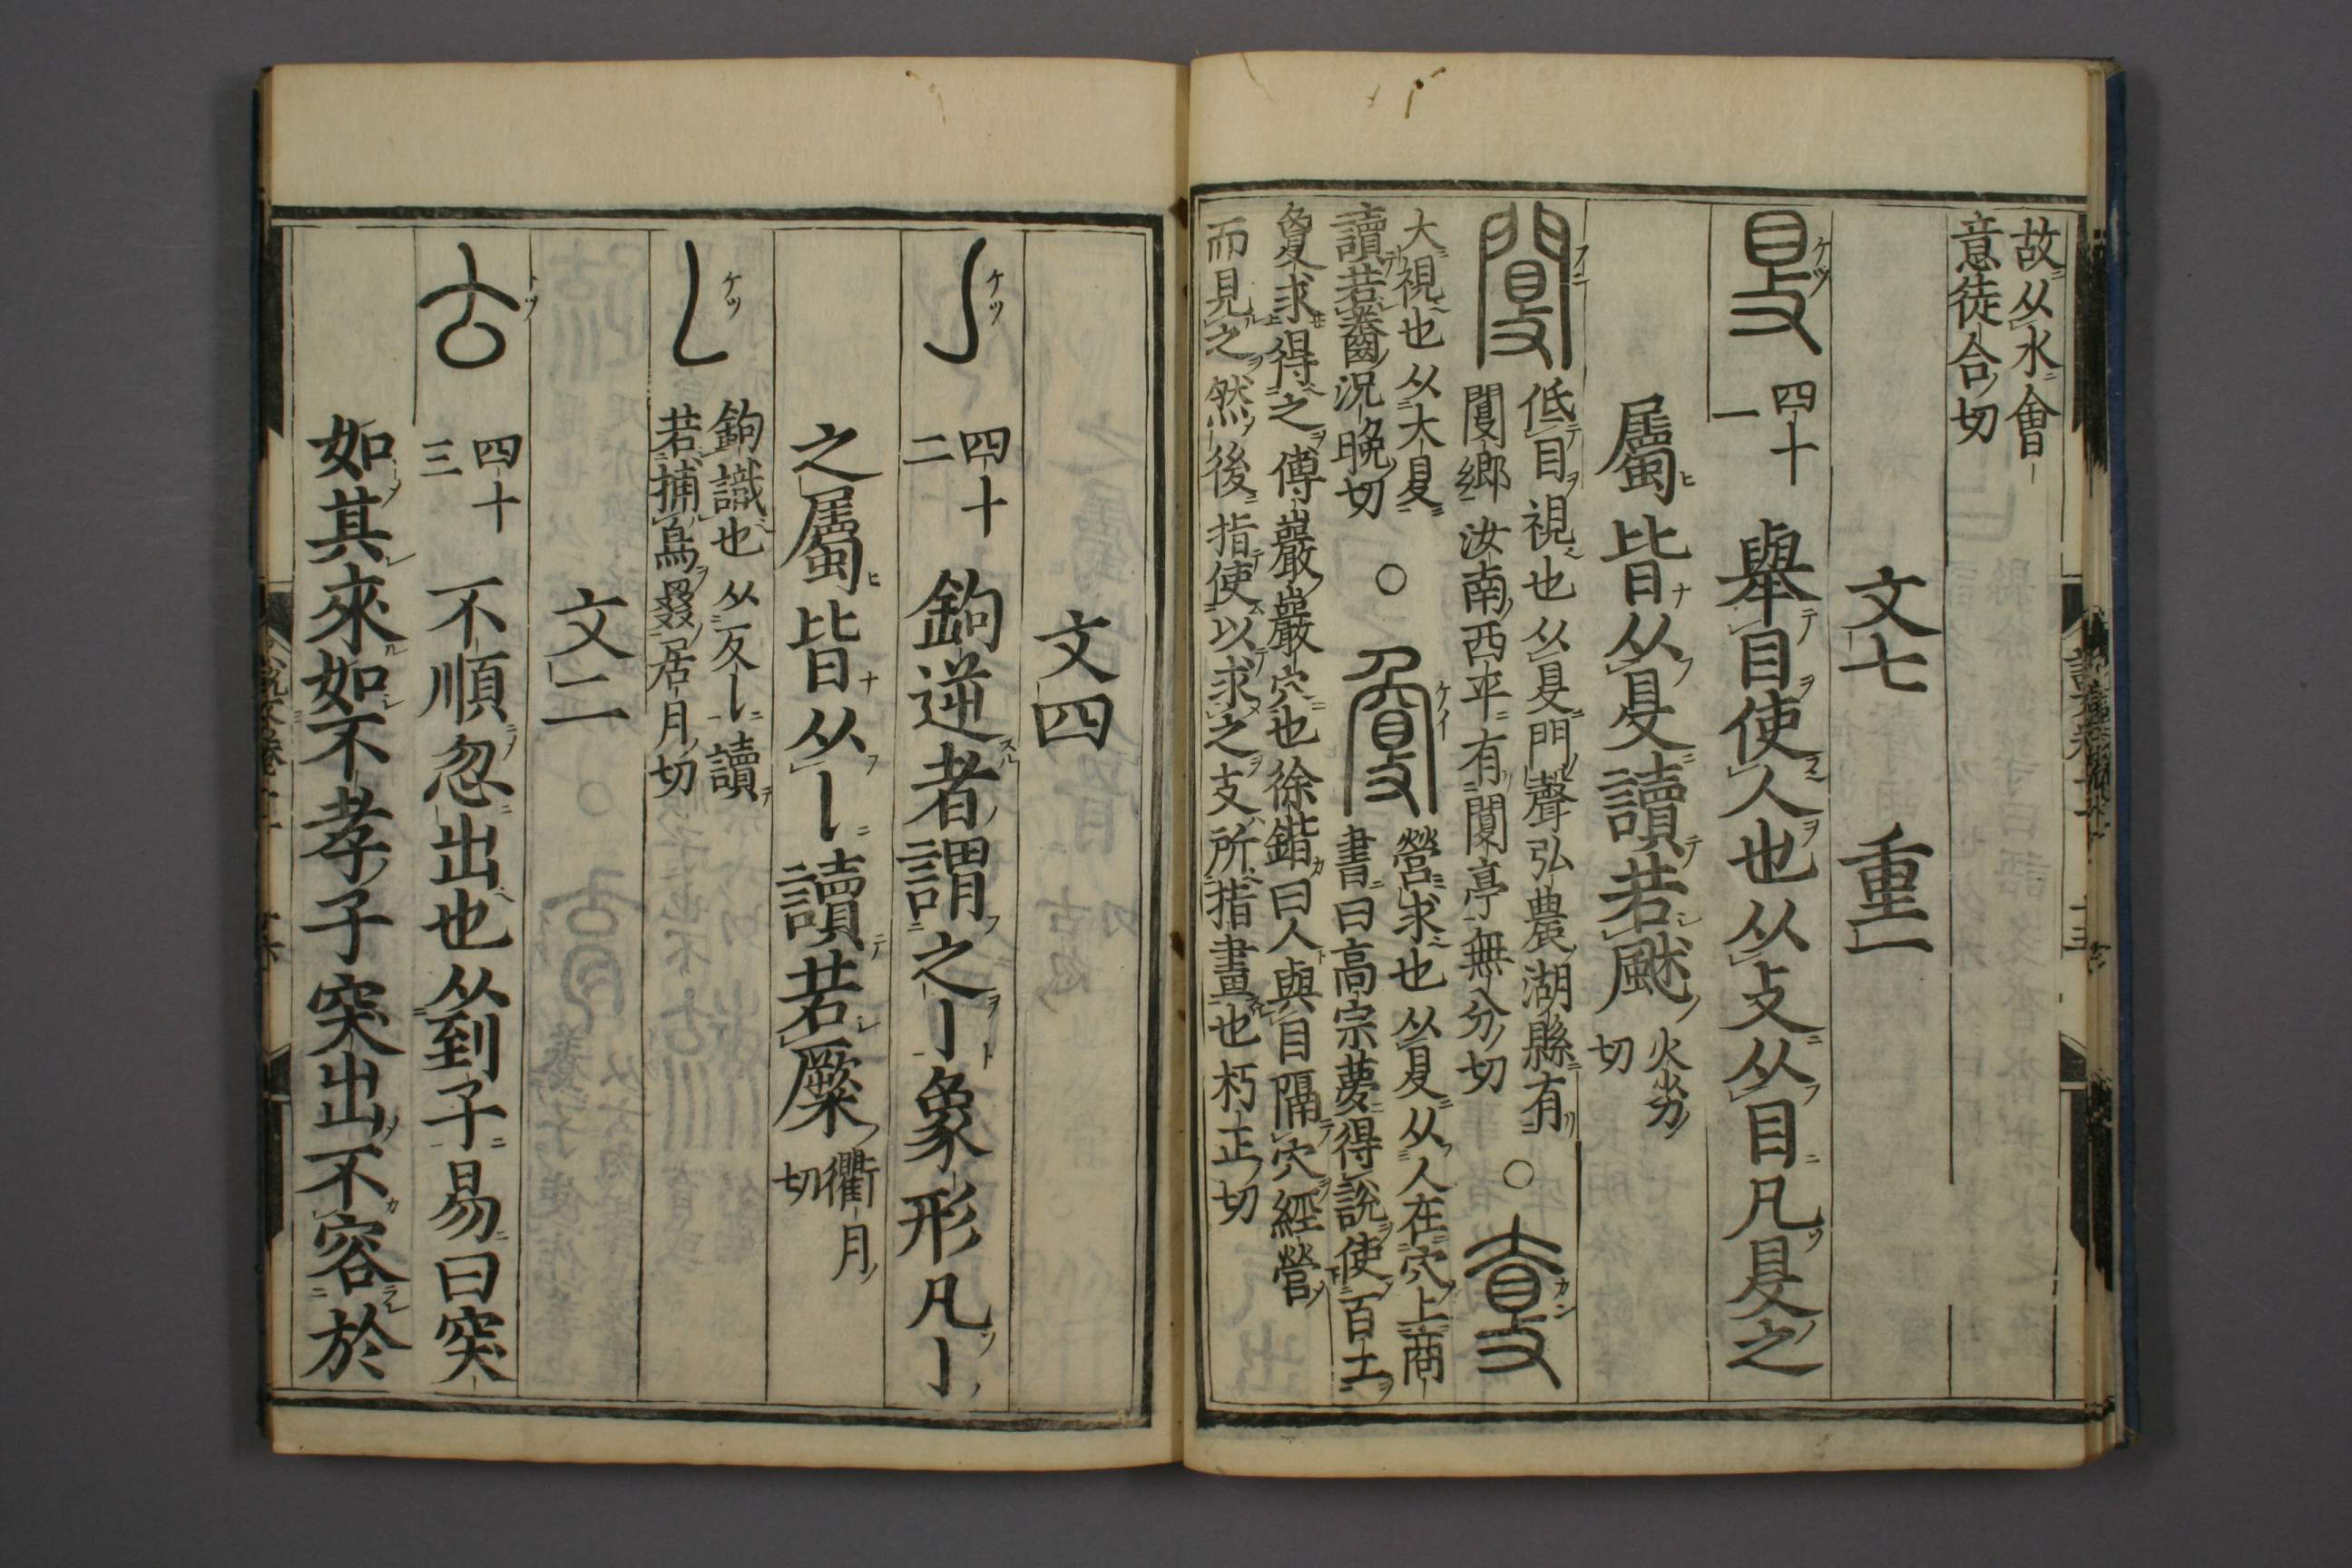 故从水會
意徒合切
文七　重一
𥄎 四十一 舉目使人也从攴从目凡𥄎之
屬皆从𥄎讀若䫻 火劣切
闅 低目視也从𥄎門聲弘農湖縣有
閿鄉汝南西平有閿亭無分切 ○ 𡘮
大視也从大𥄎
讀若齤況晚切 ○ 敻 營求也从𥄎从人在穴上商
書曰高宗夢得說使百工
敻求得之傅巖巖穴也徐鍇曰人與目隔穴經營
而見之然後指使以求之支所指畫也朽正切
文四
亅 四十二 鉤逆者謂之亅象形凡亅
之屬皆从亅讀若橜 衢月切
𠄌 鉤識也从反亅讀
若捕鳥罬居月切
文二
𠫓 四十三 不順忽出也从到子易曰突
如其來如不孝子突出不容於